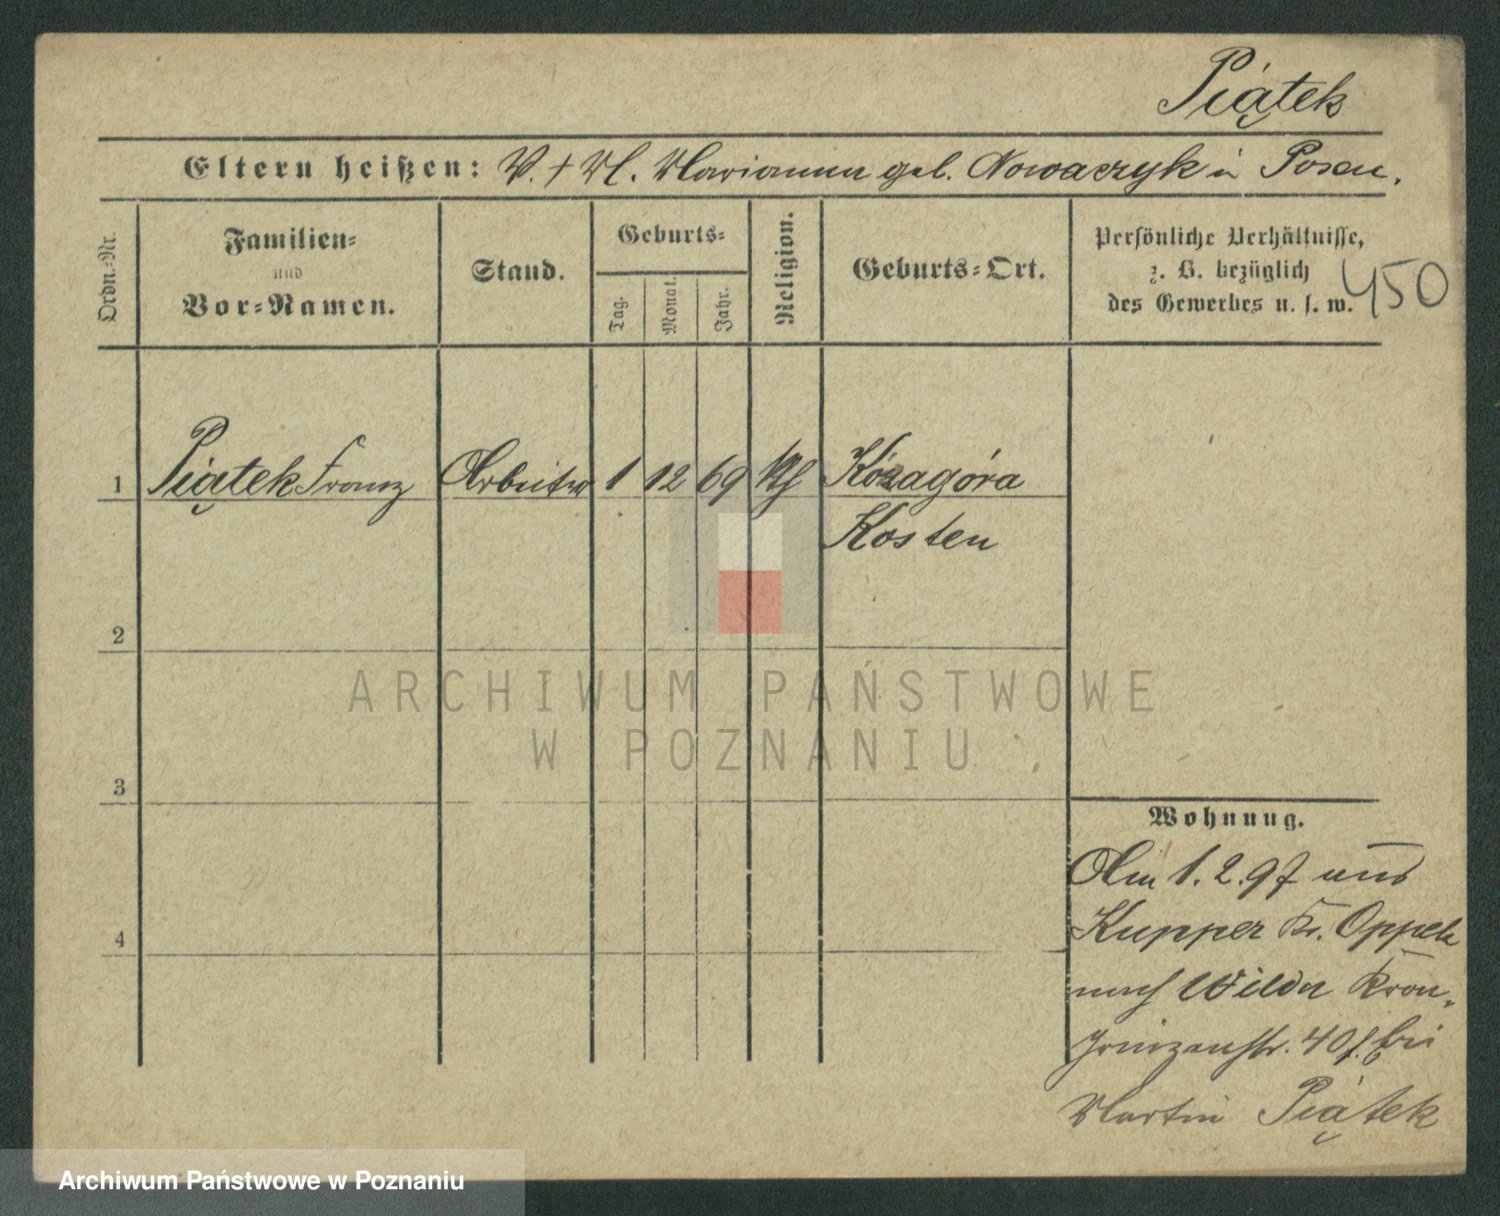 Piątek
Eltern heißen: V. † M. Marianna geb. Nowaczyk in Posen.
Ordn.-Nr.
Familien-
und
Vor-Namen.
Stand.
Geburts-
Tag.
Monat.
Jahr.
Religion.
Geburts-Ort.
Persönliche Verhältnisse,
z. B. bezüglich
des Gewerbes u. s. w.
450
1 Piątek Franz Arbeiter 1 12 69 kth Kózagóra
Kosten
2
3
4
Wohnung.
Am 1.2.97 aus
Kupper Kr. Oppeln
nach Wilda Kron-
prinzenstr. 40 f. bei
Martin Piątek
ARCHIWUM PAŃSTWOWE
W POZNANIU
Archiwum Państwowe w Poznaniu